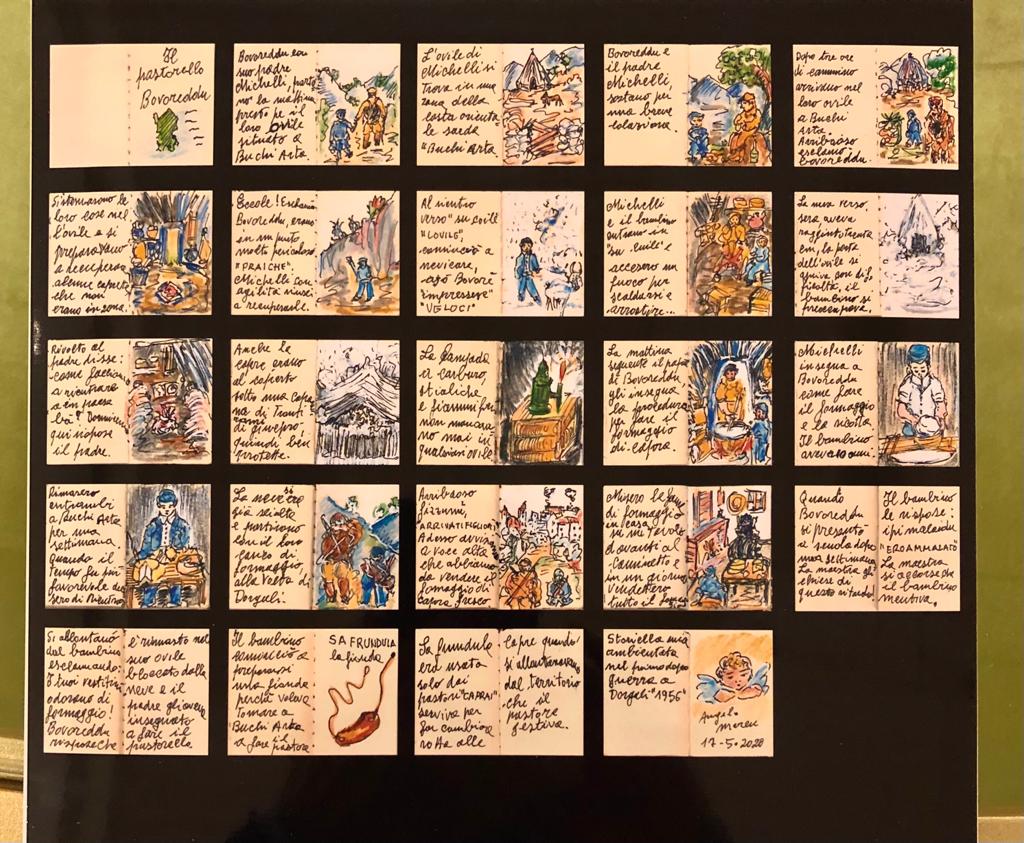 Il
pastorello
Bovoreddu
Bovoreddu con
suo padre
Michelli, parto
no la mattina
presto pe il
loro ovile
situato a
Buchi Arta
L'ovile di
Michelli si
trova in una
zona della
costa orienta
le sarda
"Buchi Arta
Bovoreddu e
il padre
Michelli
sostano per
una breve
colazione.
Dopo tre ore
di cammino
arrivano nel
loro ovile
a Buchi
Arta.
Arribaoso
esclamò
Bovoreddu.
Sistemarono le
loro cose nel
l'ovile e si
preparavano
a recuperare
alcune caprette
che non
erano in zona.
Eccole! Esclama
Bovoreddu, erano
in un punto
molto pericoloso
"PRAICHE".
Michelli con
agilità riuscì
a recuperarle.
Al rientro
verso "su cuile"
"L'OVILE",
cominciò a
nevicare,
agò Bovore
impressere"
"VELOCI"
Michelli
e il bambino
entrano in
"su cuile" e
accesero un
fuoco per
scaldarsi e
arrostire...
La neve verso
sera aveva
raggiunto trenta
cm, la porta
dell'ovile si
apriva con dif
ficoltà, il
bambino si
preoccupava.
Rivolto al
padre disse:
come faccia
a rientrare
a en paesa
bà? Dormire
qui rispose
il padre.
Anche le
capre erano
al coperto
sotto una Capa
na di Tronti
di Ginepro,
quindi ben
protette.
La lampada
a carburo,
stialiche
e fiammiferi
non manca
no mai in
qualsiasi ovile
La mattina
seguente il papà
di Bovoreddu
gli insegna
la procedura
per fare il
formaggio
di capra.
Michelli
insegna a
Bovoreddu
come fare
il formaggio
e la ricotta
Il bambino
aveva anni.
Rimasero
entrambi
a Buchi Arta
per una
settimana
quando il
tempo fu più
favorevole de
sero di rientra
La neve si
già sciolta
e partirono
con il loro
carico di
formaggio
alla volta di
Dorgali.
Arribaoso
fizzumi,
ARRIVATI FIGLIO!
Adesso avvisa
a voce alta
che abbiamo
da vendere il
formaggio di
capra fresco
Misero le
di formaggio
in casa,
su un tavolo
davanti al
Caminetto e
in un giorno
vendettero
tutto il
Quando
Bovoreddu
si presentò
a scuola dopo
una settimana
La maestra gli
chiese di
questo ritardo
Il bambino
le rispose:
ipimalaidu
"ERO AMMALATO"
La maestra
si accorse che
il bambino
mentiva.
Si allontanò
dal bambino
esclamando:
I tuoi vestiti
odorano di
formaggio!
Bovoreddu
rispose che
è rimasto nel
suo ovile
bloccato dalla
neve e il
padre gli aveva
insegnato
a fare il
pastorello
Il bambino
cominciò a
prepararsi
una fionda
perché voleva
tornare a
Buchi Arta
a fare il pastore
SA FRUNDULA
la fionda
La frundula
era usata
solo dai
pastori "CAPRAI"
serviva per
far cambiare
rotta alle
capre quando
si allontanavano
dal territorio
che il
pastore
gestiva.
Storiella mia
ambientata
nel primo dopo
guerra a
Dorgali "1956"
Angelo
17-5-2020